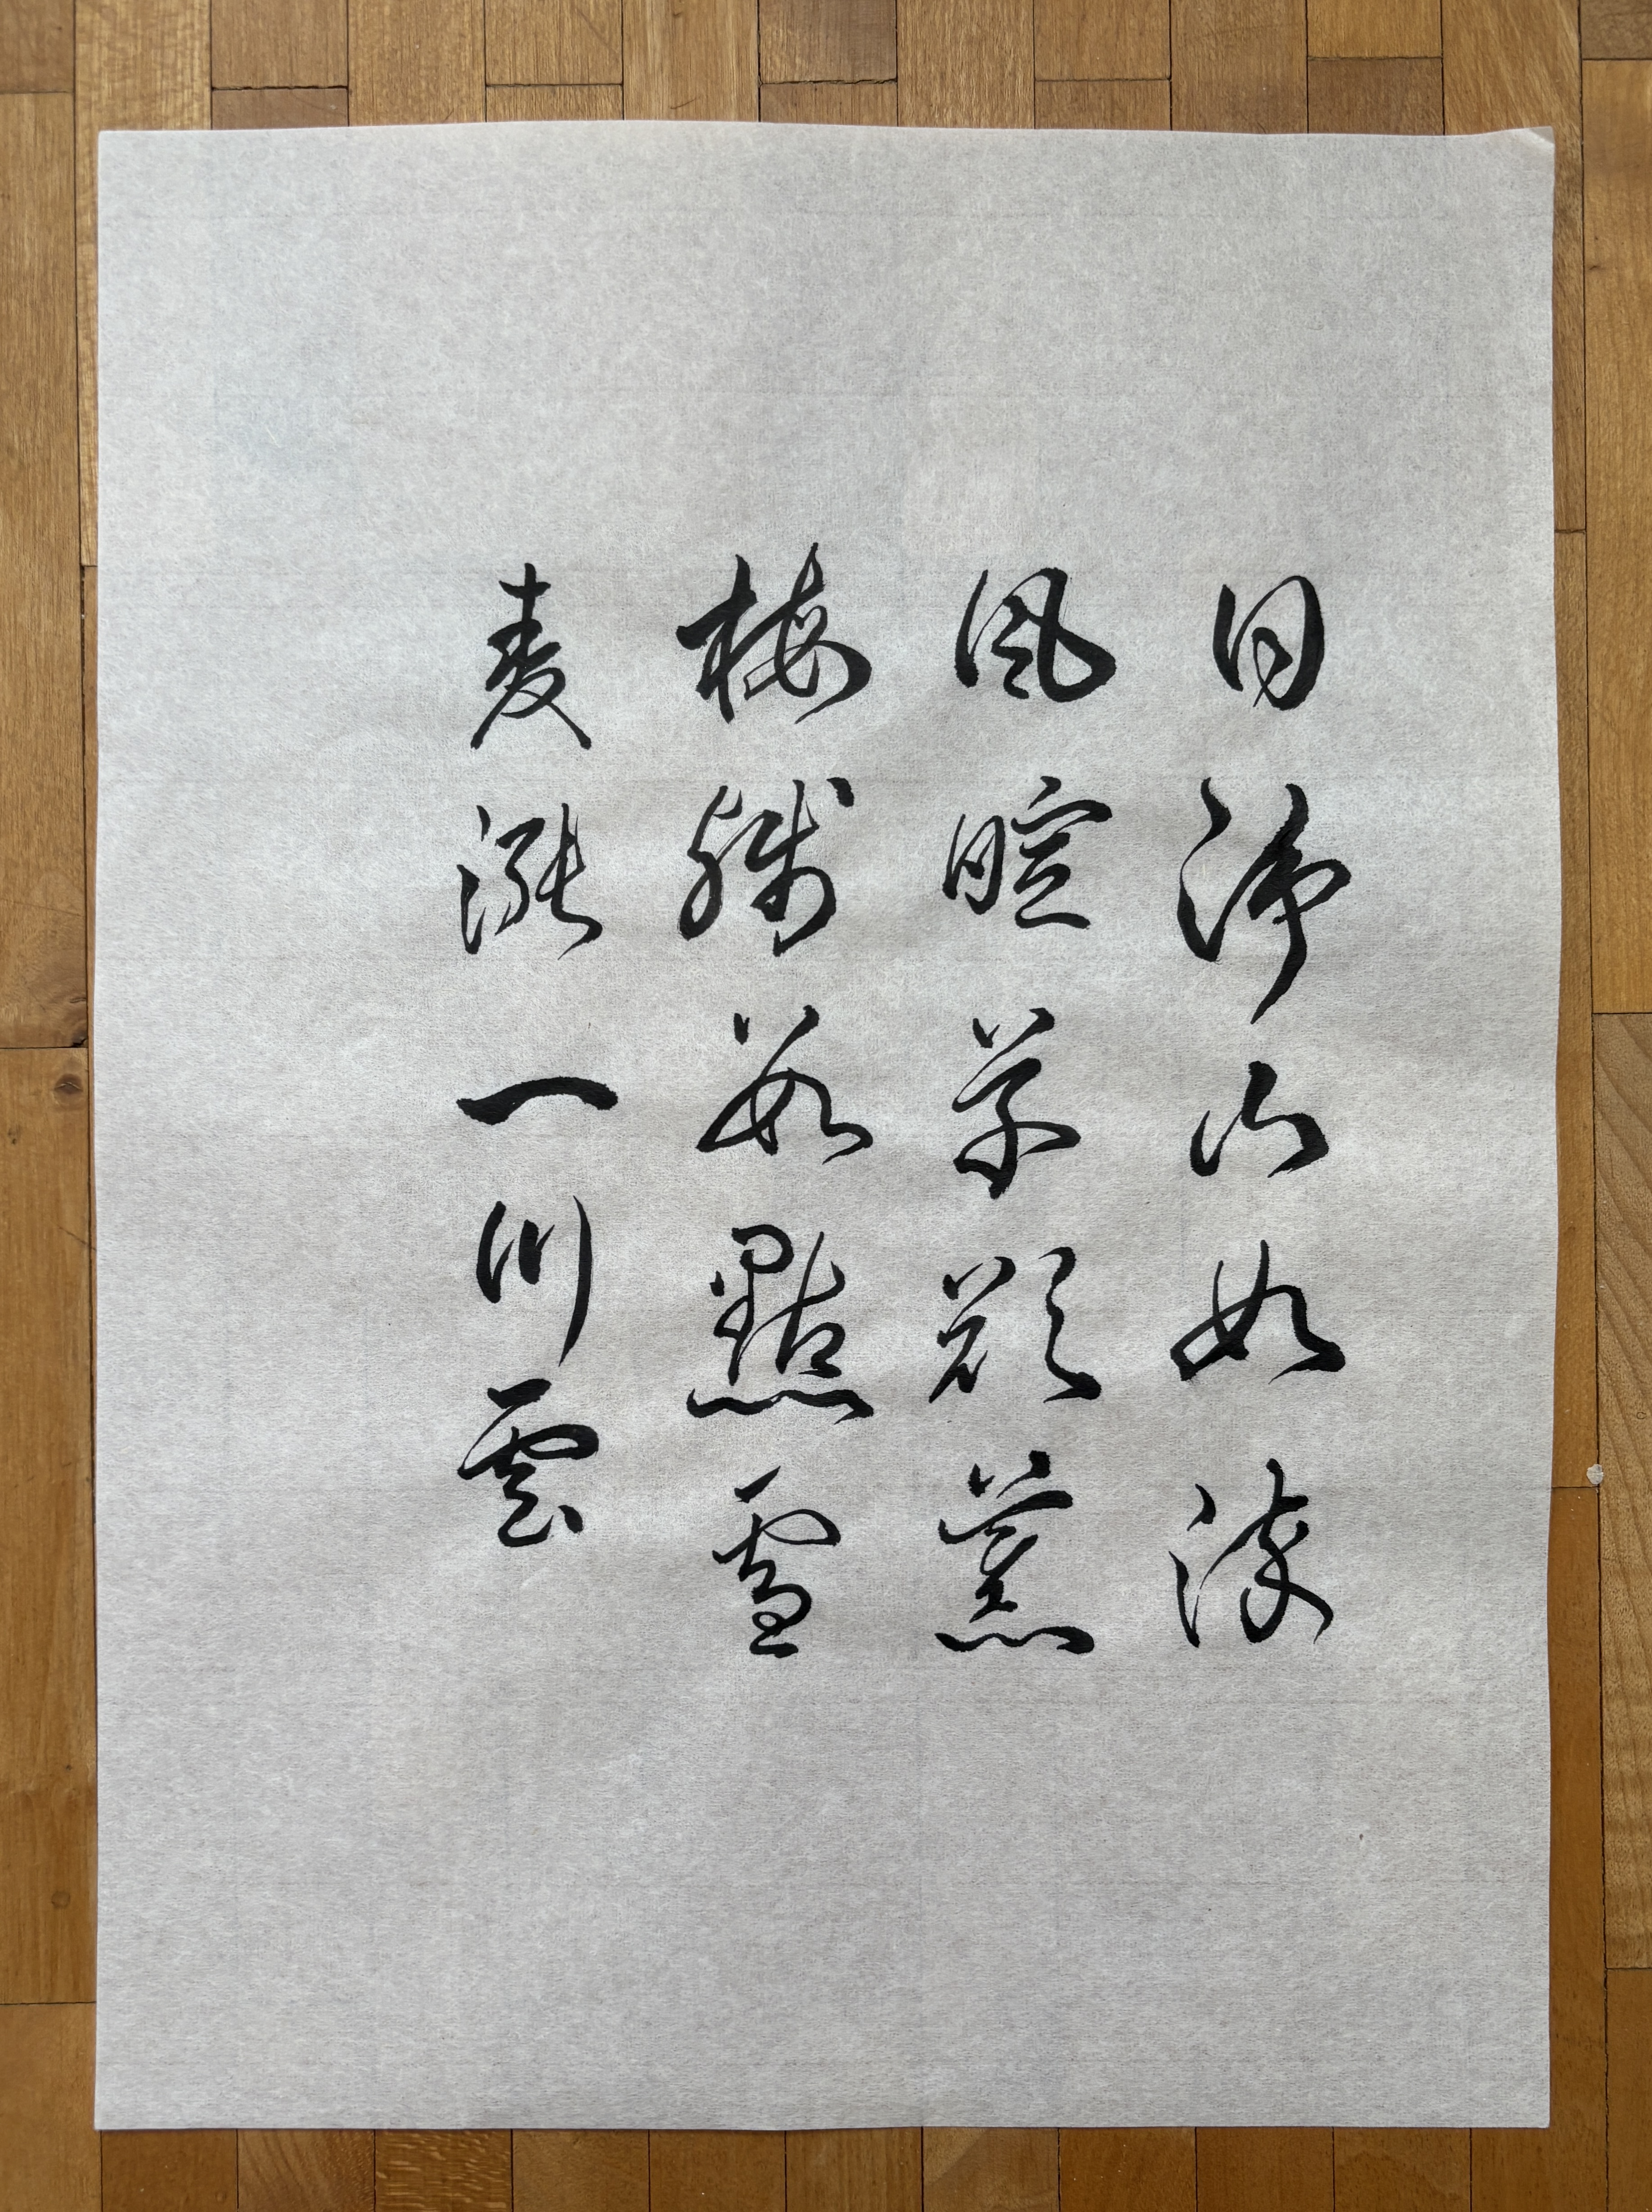 日淨山如染
風暄草欲薰
梅殘數點雪
麦漲一川雲